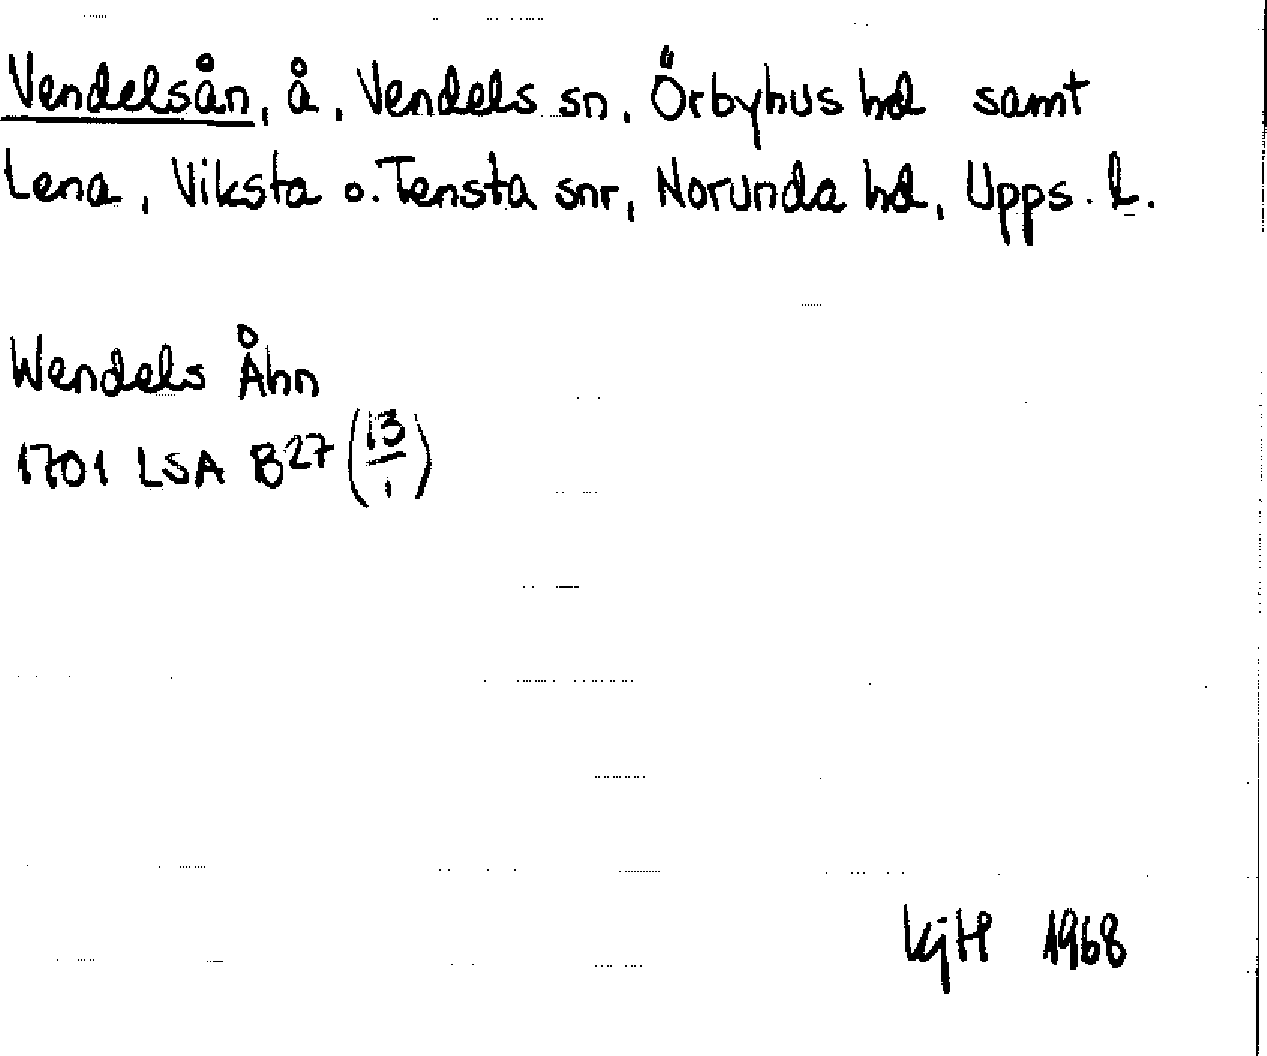 Vendelsån, å, Vendels sn, Örbyhus hd samt
Lena, Viksta o. Tensta snr, Norunda hd, Upps. l.
Wendels Åhn
1701 LSA B27 (13/1)
KjH 1968